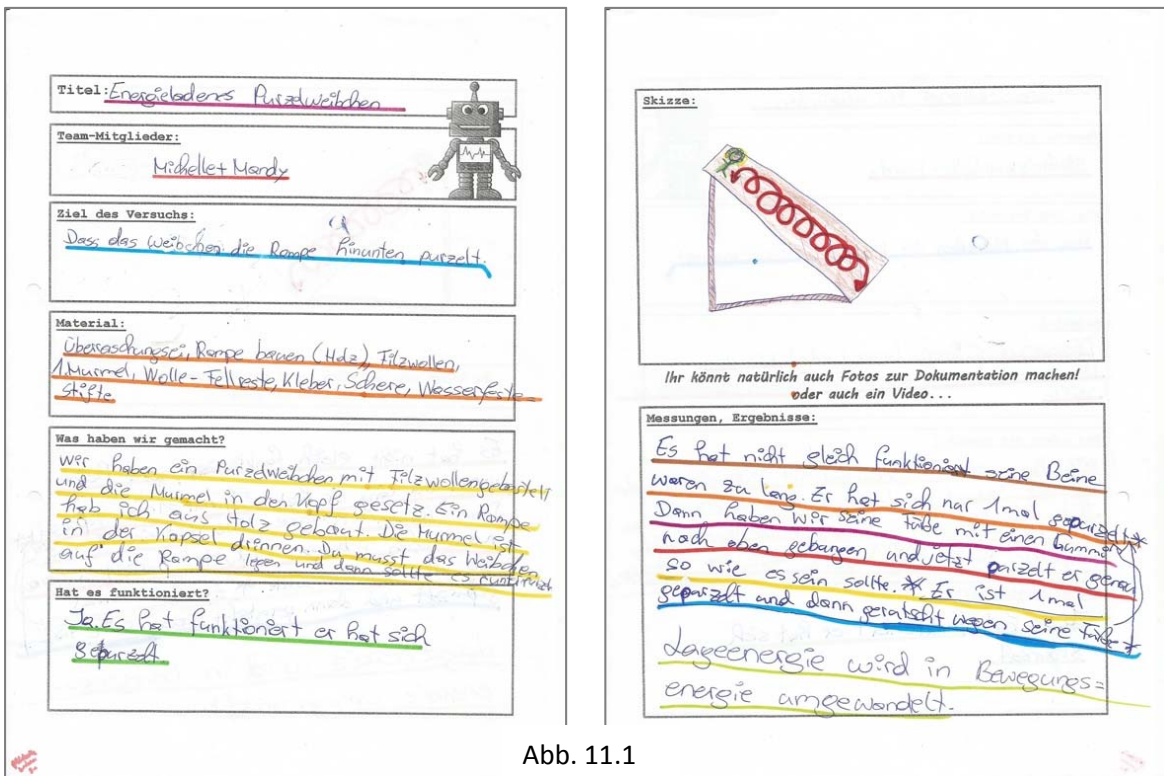 Titel: Energieladenes Purzelweibchen
Team-Mitglieder:
Michelle + Mandy
Ziel des Versuchs:
Dass das Weibchen die Rampe hinunten purzelt.
Material:
Überraschungsei, Rampe bauen (Holz), Filzwollen,
1.Murmel, Wolle-Fellreste, Kleber, Schere, Wasserfeste-
stifte
Was haben wir gemacht?
Wir haben ein Purzelweibchen mit Filzwollen gebastelt
und die Murmel in den Kopf gesetz. Ein Rampe
hab ich aus Holz gebaut. Die Murmel ist
in der Kapsel drinnen. Du musst das Weibchen
auf die Rampe legen und dann sollte es
Hat es funktioniert?
Ja. Es hat funktioniert er hat sich
gepurzelt.
Skizze:
Ihr könnt natürlich auch Fotos zur Dokumentation machen!
oder auch ein Video...
Messungen, Ergebnisse:
Es hat nicht gleich funktioniert seine Beine
waren zu lang. Er hat sich nur 1mal gepurzelt*
Dann haben wir seine Füße mit einen Gummi
nach oben gebungen und jetzt purzelt er genau
so wie es sein sollte. * Er ist 1mal
gepurzelt und dann gerutscht wegen seine Füße *
Lageenergie wird in Bewegungs=
energie umgewandelt.
Abb. 11.1